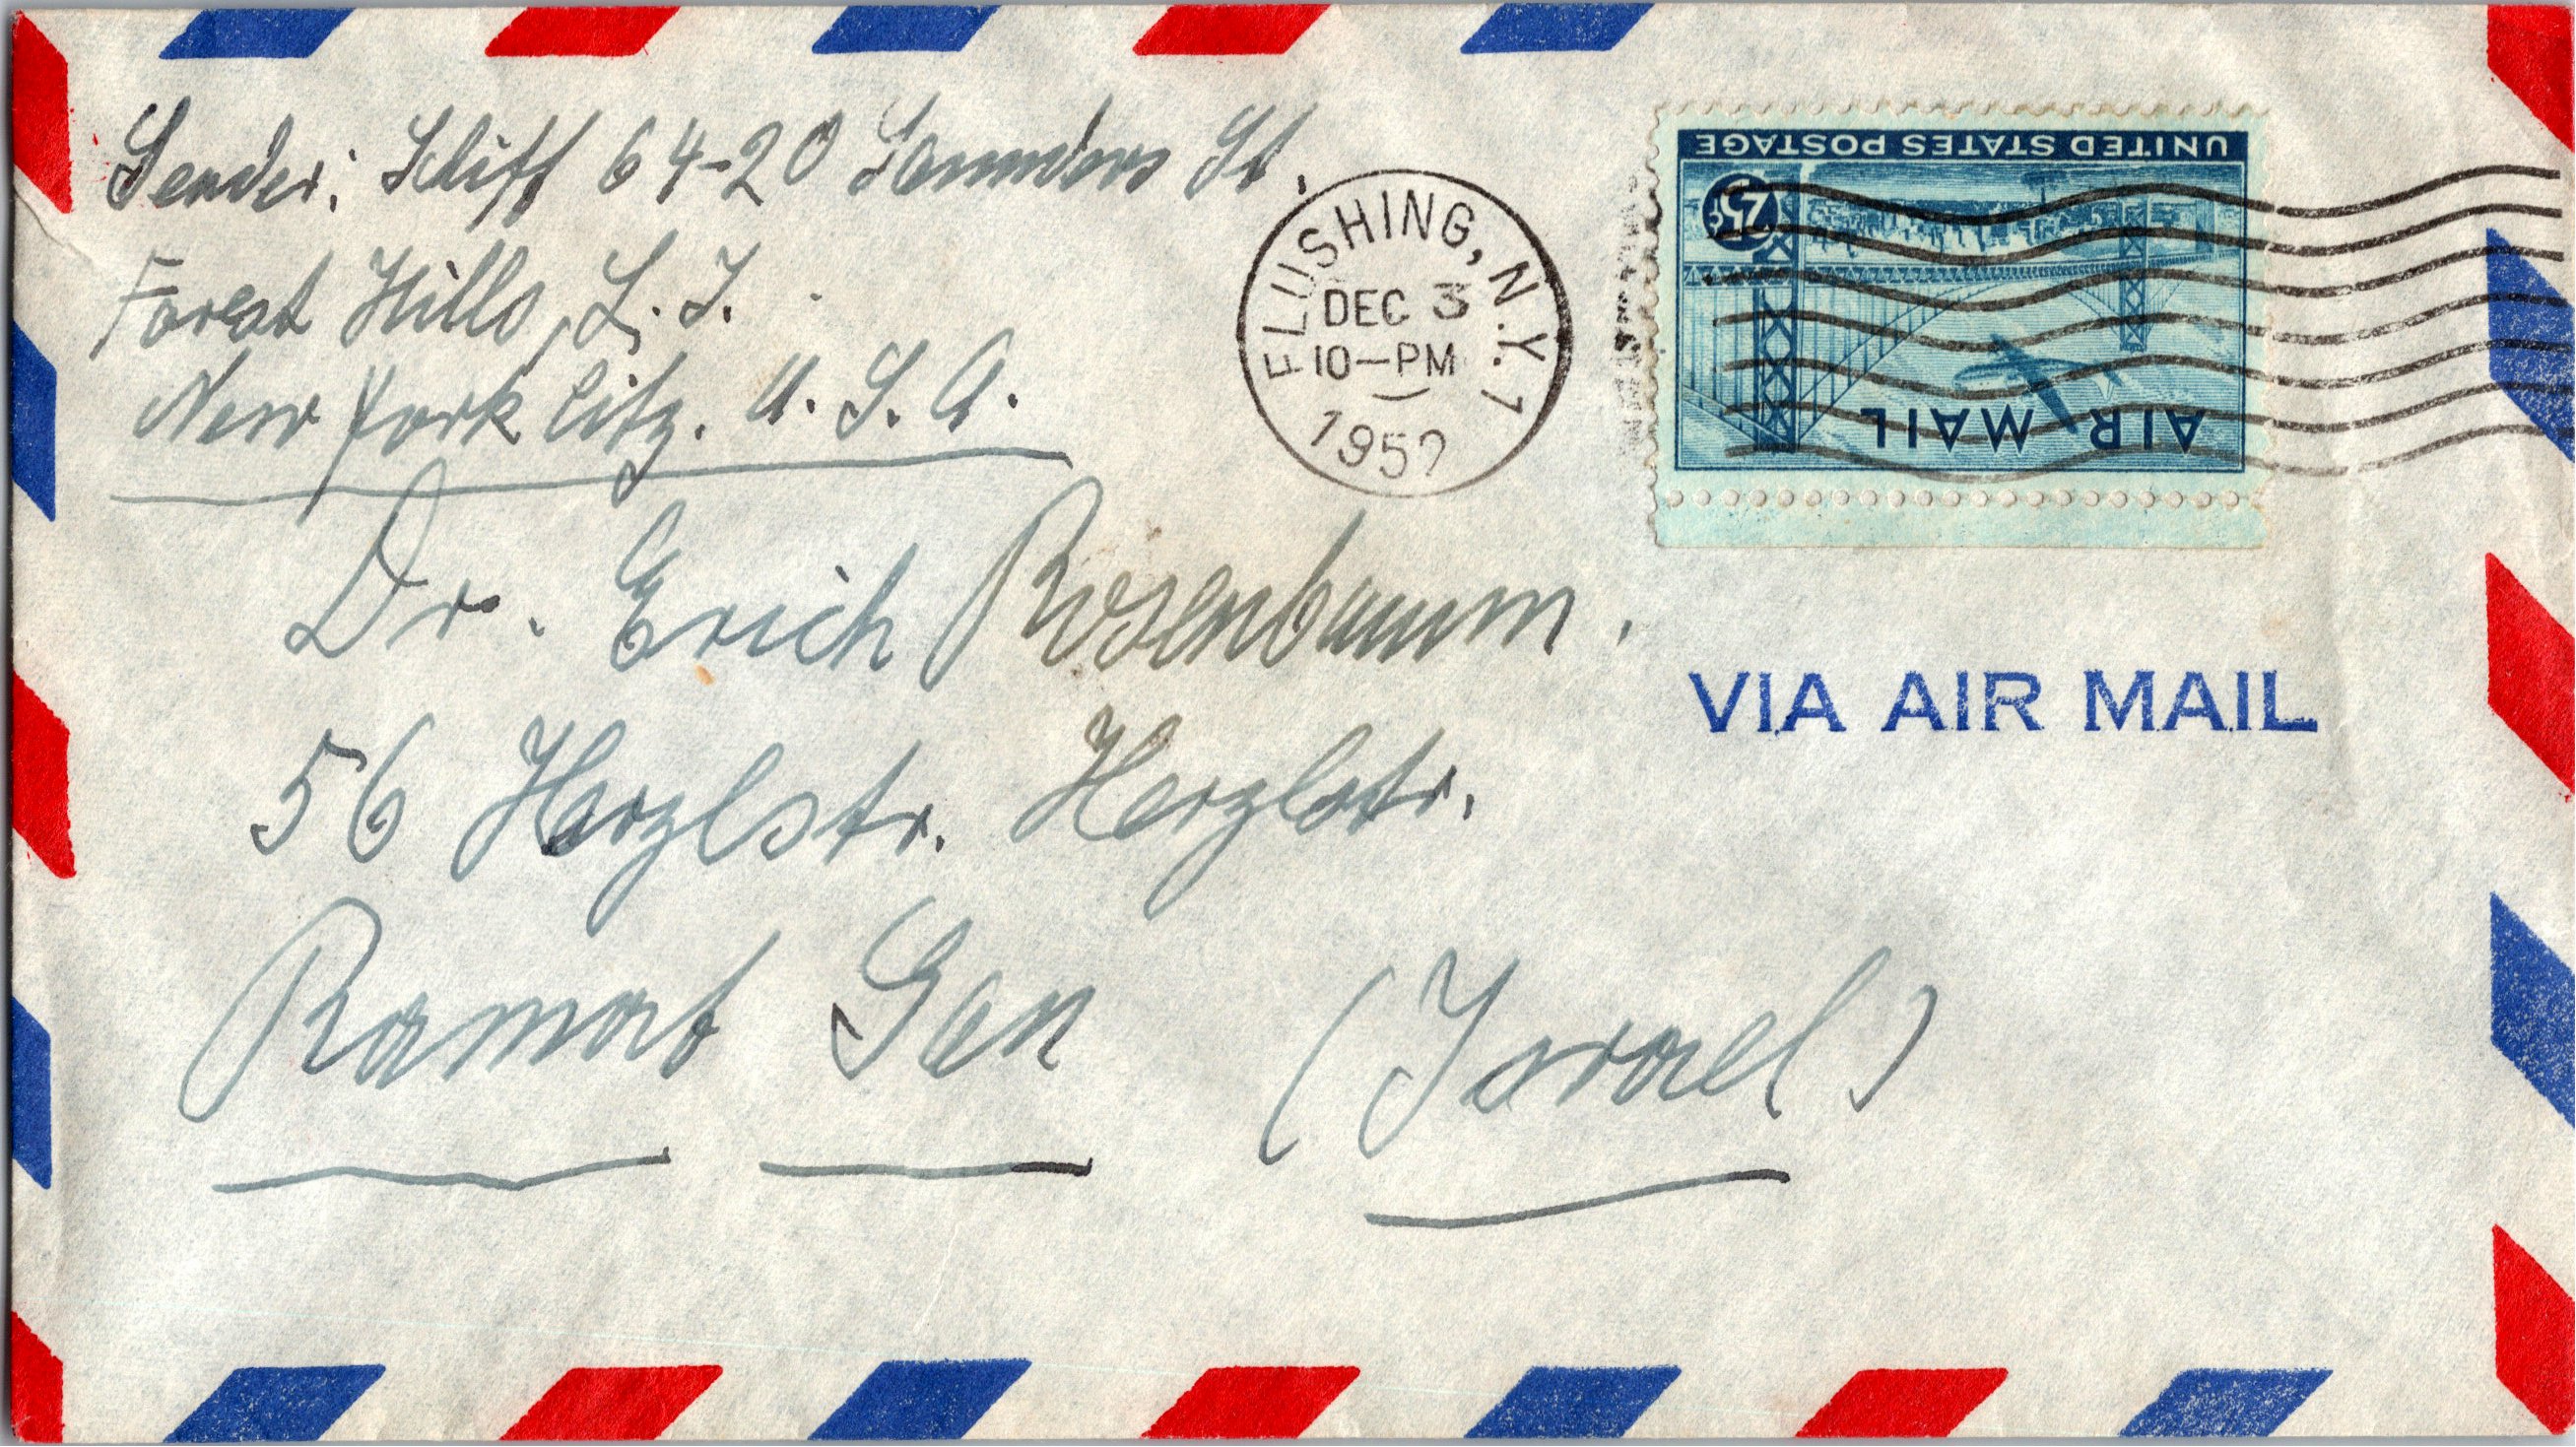 Sender: Schiff 64-20 Saunders St.
Forest Hills, L. I.
New York City. U. S. A.
FLUSHING, N.Y. 1
DEC 3
10—PM
195
UNITED STATES POSTAGE
25¢
AIR MAIL
Dr. Erich Rosenbaum.
VIA AIR MAIL
56 Herzlstr. Herzlstr.
Ramat Gan (Israel)